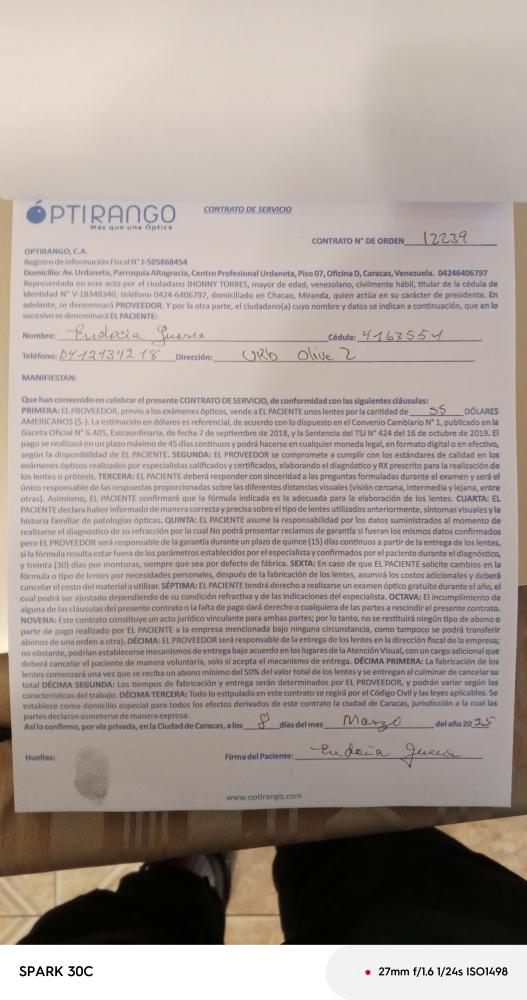 OPTIRANGO
Más que una Óptica
CONTRATO DE SERVICIO
CONTRATO N° DE ORDEN 12239
OPTIRANGO, C.A.
Registro de Información Fiscal N° J-505868454
Domicilio: Av. Urdaneta, Parroquia Altagracia, Centro Profesional Urdaneta, Piso 07, Oficina D, Caracas, Venezuela. 04246406797
Representada en este acto por el ciudadano JHONNY TORRES, mayor de edad, venezolano, civilmente hábil, titular de la cédula de
Identidad N° V-18348340, teléfono 0424-6406797, domiciliado en Chacao, Miranda, quien actúa en su carácter de presidente. En
adelante, se denominará PROVEEDOR. Y por la otra parte, el ciudadano(a) cuyo nombre y datos se indican a continuación, que en lo
sucesivo se denominará EL PACIENTE:
Nombre: Eudocia Guerra Cédula: 4163551
Teléfono: 0412134218 Dirección: URb Olive 2
MANIFIESTAN:
Que han convenido en celebrar el presente CONTRATO DE SERVICIO, de conformidad con las siguientes cláusulas:
PRIMERA: EL PROVEEDOR, previo a los exámenes ópticos, vende a EL PACIENTE unos lentes por la cantidad de 55 DÓLARES
AMERICANOS ($-). La estimación en dólares es referencial, de acuerdo con lo dispuesto en el Convenio Cambiario N° 1, publicado en la
Gaceta Oficial N° 6.405, Extraordinaria, de fecha 7 de septiembre de 2018, y la Sentencia del TSJ N° 424 del 16 de octubre de 2019. El
pago se realizará en un plazo máximo de 45 días continuos y podrá hacerse en cualquier moneda legal, en formato digital o en efectivo,
según la disponibilidad de EL PACIENTE. SEGUNDA: EL PROVEEDOR se compromete a cumplir con los estándares de calidad en los
exámenes ópticos realizados por especialistas calificados y certificados, elaborando el diagnóstico y RX prescrito para la realización de
los lentes o prótesis. TERCERA: EL PACIENTE deberá responder con sinceridad a las preguntas formuladas durante el examen y será el
único responsable de las respuestas proporcionadas sobre las diferentes distancias visuales (visión cercana, intermedia y lejana, entre
otras). Asimismo, EL PACIENTE confirmará que la fórmula indicada es la adecuada para la elaboración de los lentes. CUARTA: EL
PACIENTE declara haber informado de manera correcta y precisa sobre el tipo de lentes utilizados anteriormente, síntomas visuales y la
historia familiar de patologías ópticas. QUINTA: EL PACIENTE asume la responsabilidad por los datos suministrados al momento de
realizarse el diagnostico de su refracción por lo cual No podrá presentar reclamos de garantía si fueran los mismos datos confirmados
pero EL PROVEEDOR será responsable de la garantía durante un plazo de quince (15) días continuos a partir de la entrega de los lentes,
si la fórmula resulta estar fuera de los parámetros establecidos por el especialista y confirmados por el paciente durante el diagnóstico,
y treinta (30) días por monturas, siempre que sea por defecto de fábrica. SEXTA: En caso de que EL PACIENTE solicite cambios en la
fórmula o tipo de lentes por necesidades personales, después de la fabricación de los lentes, asumirá los costos adicionales y deberá
cancelar el costo del material a utilizar. SÉPTIMA: EL PACIENTE tendrá derecho a realizarse un examen óptico gratuito durante el año, el
cual podrá ser ajustado dependiendo de su condición refractiva y de las indicaciones del especialista. OCTAVA: El incumplimiento de
alguna de las cláusulas del presente contrato o la falta de pago dará derecho a cualquiera de las partes a rescindir el presente contrato.
NOVENA: Este contrato constituye un acto jurídico vinculante para ambas partes; por lo tanto, no se restituirá ningún tipo de abono o
parte de pago realizado por EL PACIENTE a la empresa mencionada bajo ninguna circunstancia, como tampoco se podrá transferir
abonos de una orden a otra). DÉCIMA: EL PROVEEDOR será responsable de la entrega de los lentes en la dirección fiscal de la empresa;
no obstante, podrían establecerse mecanismos de entrega bajo acuerdo en los lugares de la Atención Visual, con un cargo adicional que
deberá cancelar el paciente de manera voluntaria, solo si acepta el mecanismo de entrega. DÉCIMA PRIMERA: La fabricación de los
lentes comenzará una vez que se reciba un abono mínimo del 50% del valor total de los lentes y se entregan al culminar de cancelar su
total DÉCIMA SEGUNDA: Los tiempos de fabricación y entrega serán determinados por EL PROVEEDOR, y podrán variar según las
características del trabajo. DÉCIMA TERCERA: Todo lo estipulado en este contrato se regirá por el Código Civil y las leyes aplicables. Se
establece como domicilio especial para todos los efectos derivados de este contrato la ciudad de Caracas, jurisdicción a la cual las
partes declaran someterse de manera expresa.
Así lo confirmo, por vía privada, en la Ciudad de Caracas, a los 8 días del mes Marzo del año 2025
Huellas: Firma del Paciente: Eudocia Guerra
www.optirango.com
SPARK 30C
27mm f/1.6 1/24s ISO1498